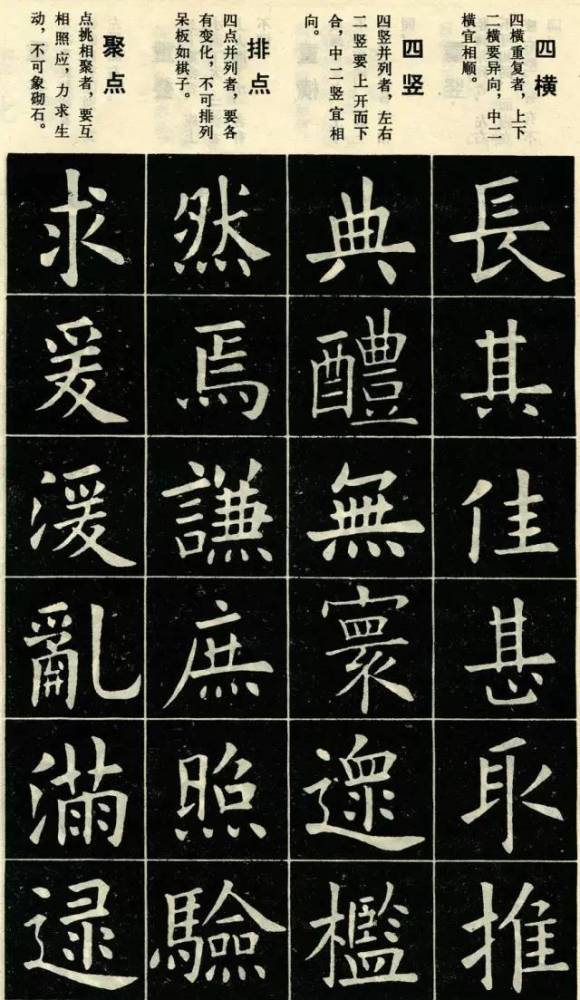 四横
四横重复者，上下
二横要异向，中二
横宜相顺。
長其佳甚取推
四竖
四竖并列者，左右
二竖要上开而下
合，中二竖宜相
向。
典醴無寰還檻
排点
四点并列者，要各
有变化，不可排列
呆板如棋子。
然焉謙庶照驗
聚点
点挑相聚者，要互
相照应，力求生
动，不可象砌石。
求爰湲亂滿逮